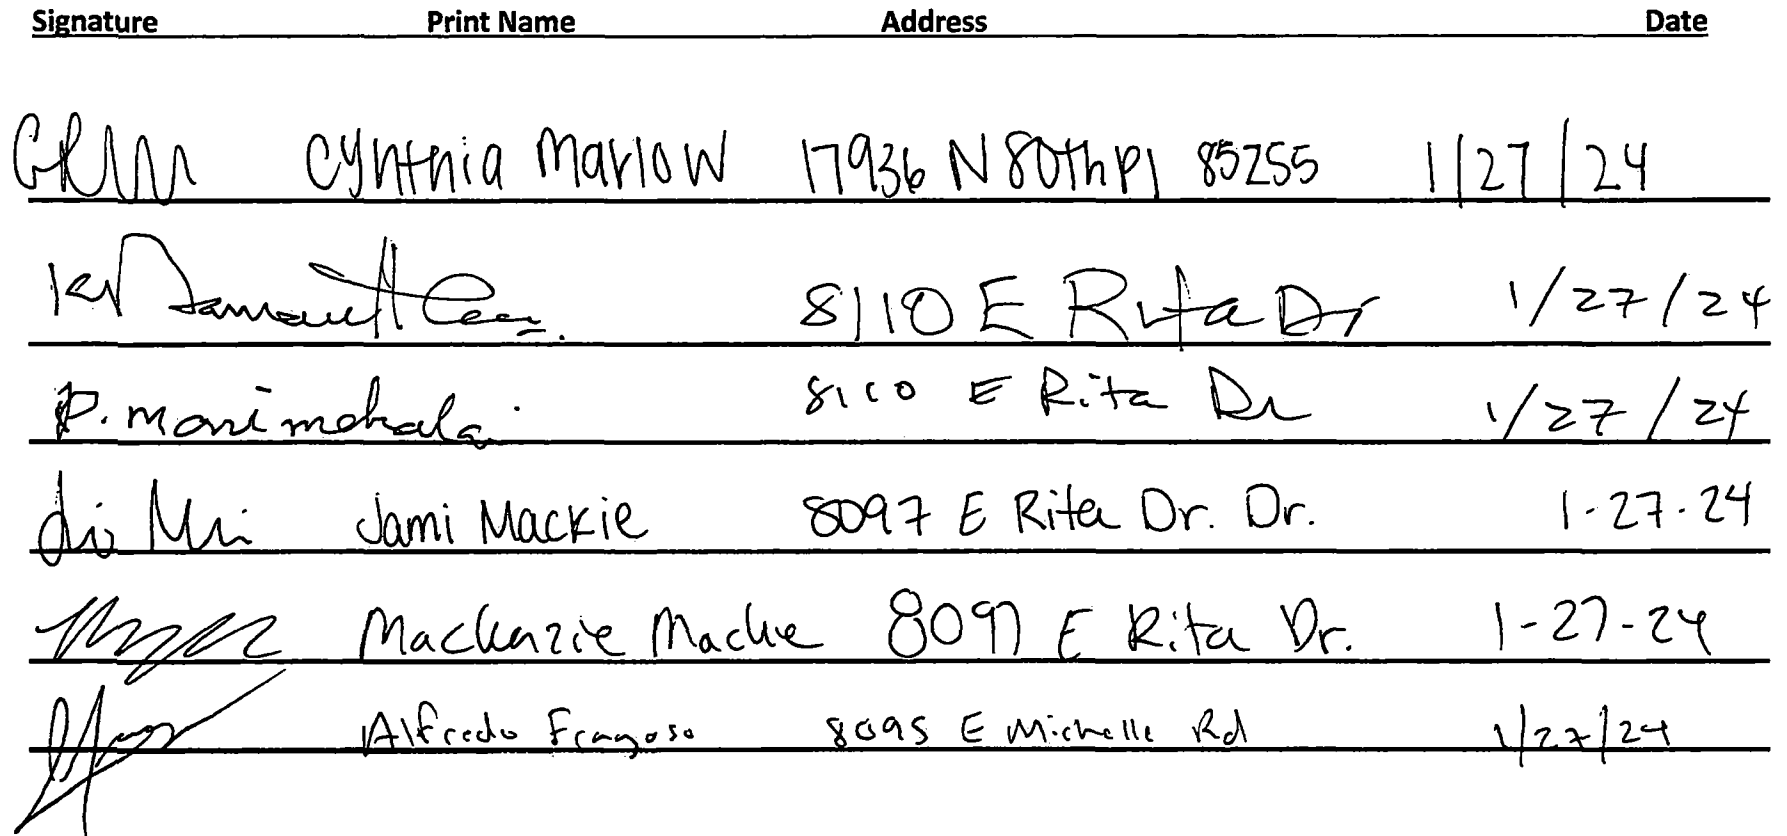 Signature Print Name Address Date
Cynthia Marlow 17936 N 80th Pl 85255 1/27/24
8110 E Rita Dr 1/27/24
P. manimekalai 8110 E Rita Dr 1/27/24
Jami Mackie 8097 E Rita Dr. Dr. 1-27-24
Mackenzie Mackie 8097 E Rita Dr. 1-27-24
Alfredo Fragoso 8095 E Michelle Rd 1/27/24